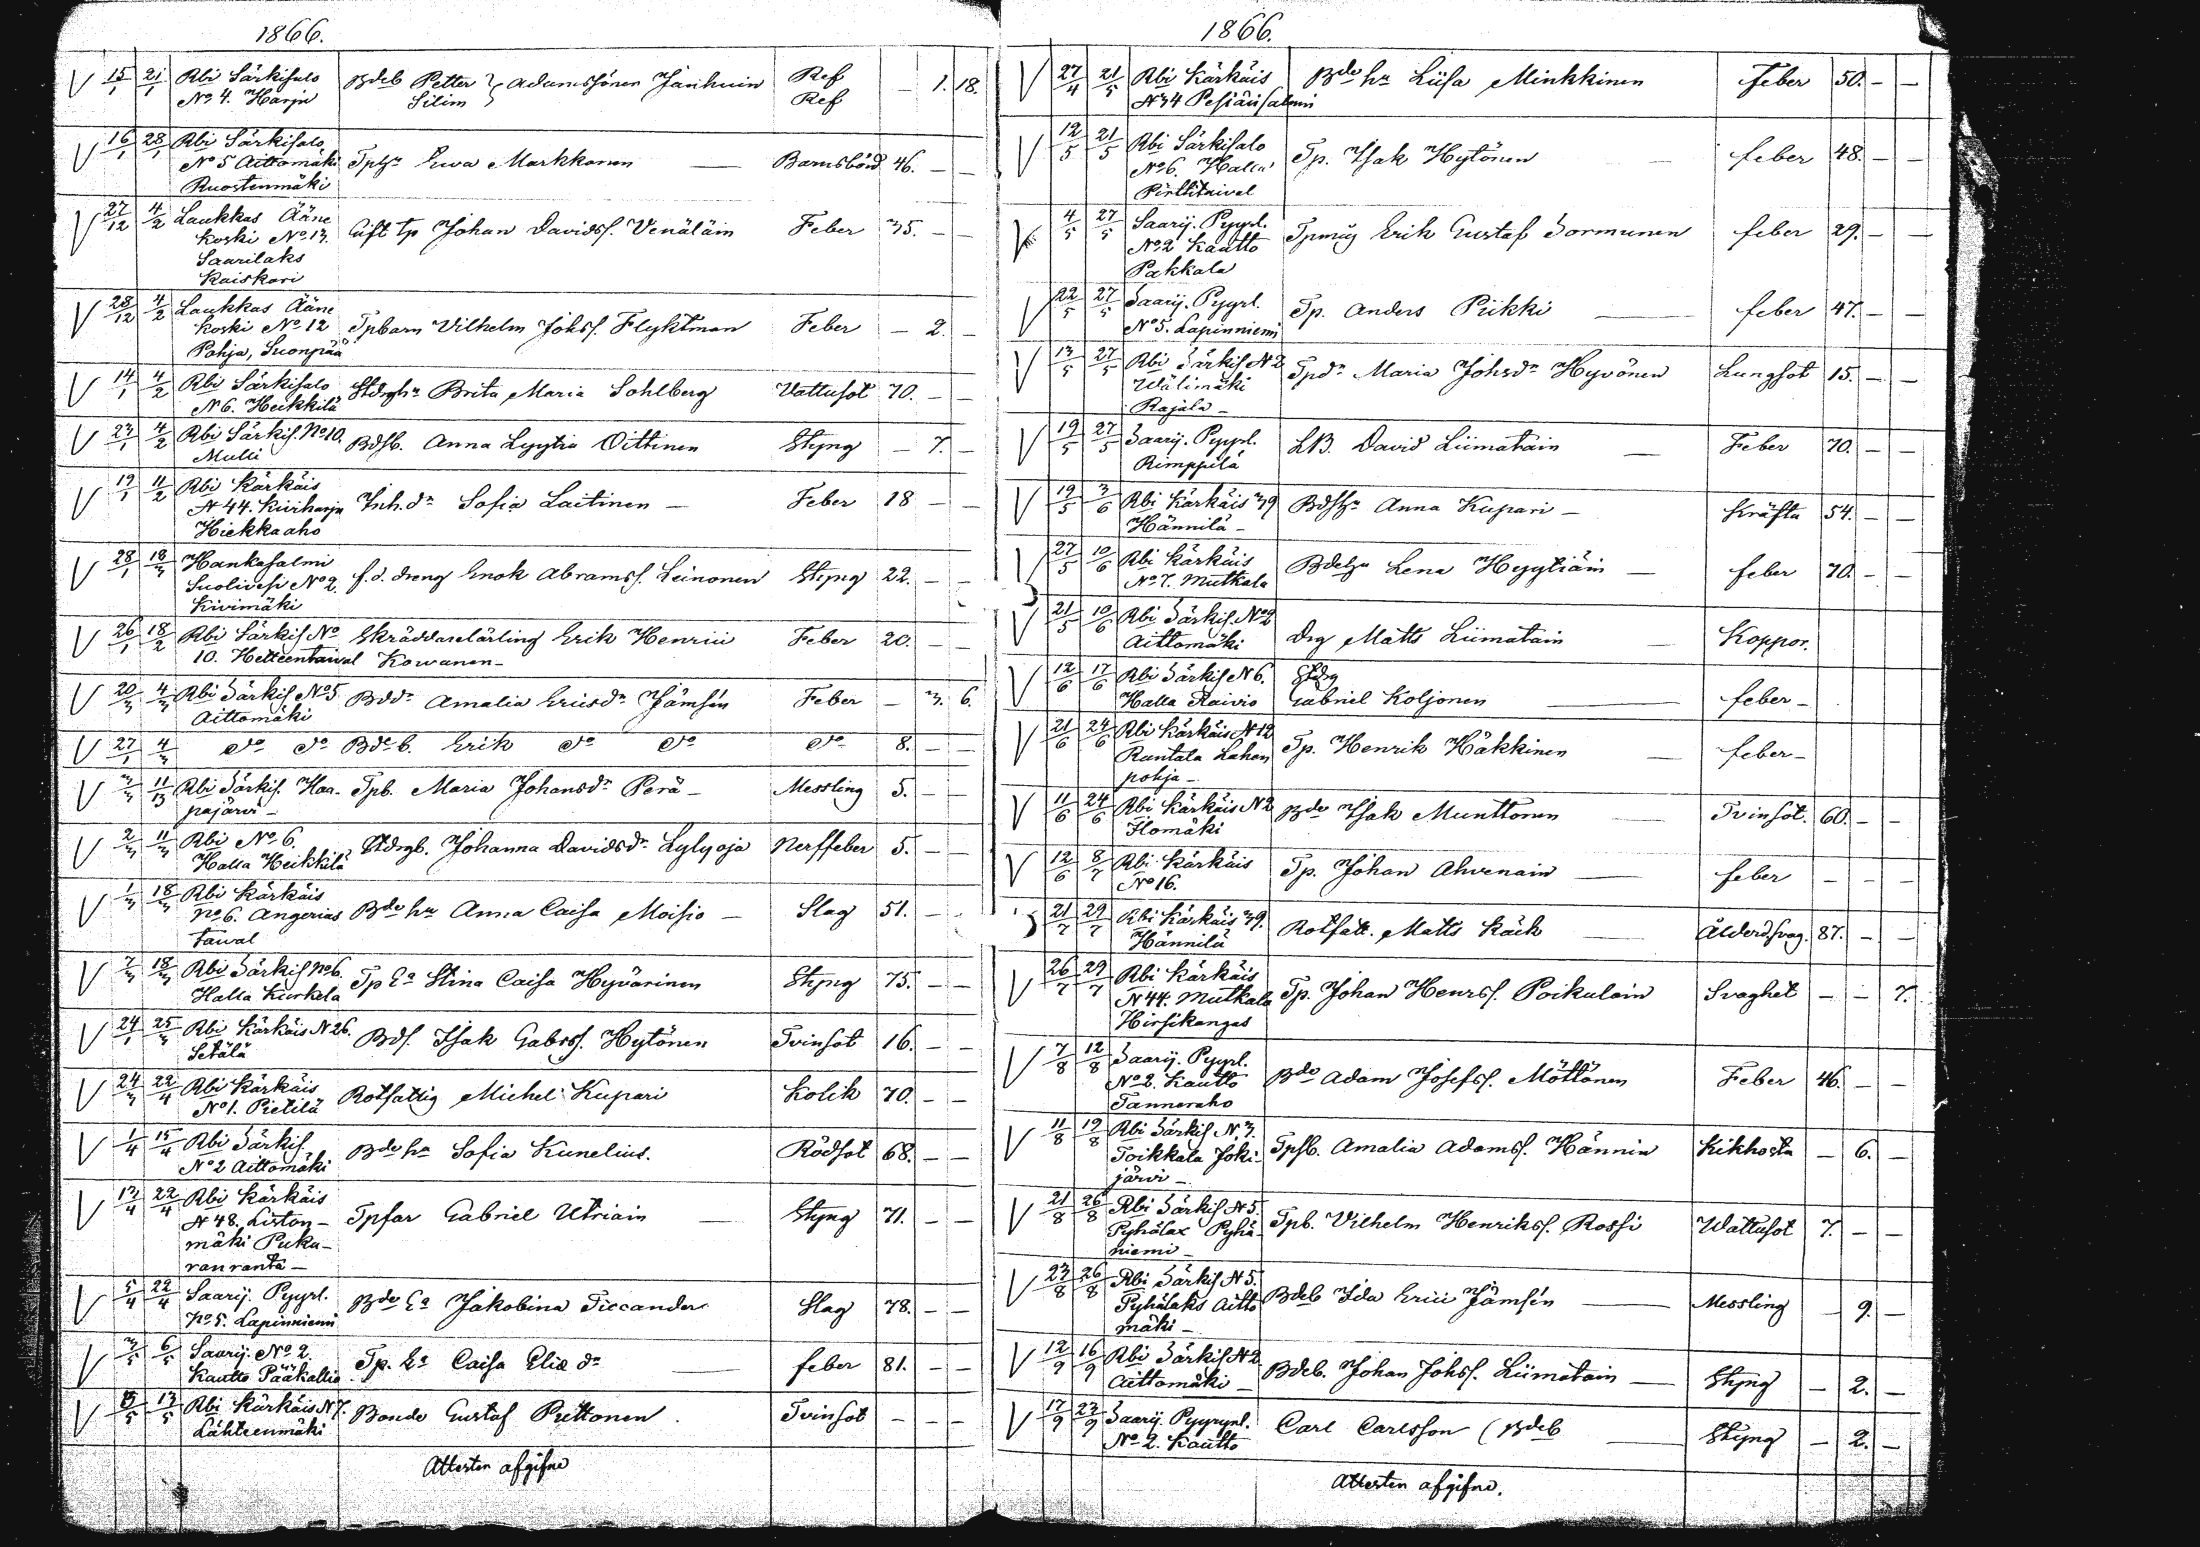 1866.
V 15/1 21/1 Rbi Särkisalo Bdeb Petter } Adamssöner Jänhuin Ref — 1. 18.
No 4. Harju Silim Ref
V 16/1 28/1 Rbi Särkisalo
No 5 Aittomäki Tphu Ewa Markkanen — Barnsbörd 46. — —
Ruostenmäki
V 27/12 4/2 Laukkas Ääne
koski No 13. Gift tp Johan Davidss. Venäläin Feber 35. — —
Saarilaks
Kaiskari
V 28/12 4/2 Laukkas Ääne
koski No 12 Tpbarn Vilhelm Johss. Flyktman Feber — 2. —
Pohja, Suonpää
V 14/1 4/2 Rbi Särkisalo Stdrghu Brita Maria Sohlberg Vattusot 70. — —
N 6. Heikkilä
V 23/1 4/2 Rbi Särkis. No 10. Bdsb. Anna Lyytia Oittinen Styng — 7. —
Multi
V 19/1 11/2 Rbi Kärkäis
N 44. Kiirharju Inh. dr Sofia Laitinen — Feber 18 — —
Hiekkaaho
V 28/1 18/3 Hankasalmi
Suolivesi No 2. f. d. dreng Enok Abramss. Leinonen Styng 22. — —
Kivimäki
V 26/1 18/2 Rbi Särkis No Skräddarelärling Erik Henrici Feber 20. — —
10. Hetteentaival Kowanen —
V 20/3 4/3 Rbi Särkis No 5 Bddr Amalia Ericsdr Jämsén Feber — 3. 6.
Aittomäki
V 27/1 4/3 do do Bdeb. Erik do do do 8. — —
V 3/3 11/3 Rbi Särkis. Haa- Tpb. Maria Johansdr Perä — Messling 5. — —
pajärvi —
V 2/3 11/3 Rbi No 6. Stdrgb. Johanna Davidsdr Lylyoja Nerffeber 5. — —
Halla Heikkilä
V 1/3 18/3 Rbi Kärkäis
No 6. Angerias Bde hu Anna Caisa Moisio — Slag 51. —
taival
V 7/3 18/3 Rbi Särkis No 6. Tp Ea Stina Caisa Hyvärinen Styng 75. — —
Halla Kurkela
V 24/1 25/3 Rbi Kärkäis N 26. Bds. Isak Gabrss. Hytönen Tvinsot 16. — —
Setälä
V 24/3 22/4 Rbi Kärkäis Rotfattig Michel Kupari Kolik 70. — —
No 1. Pietilä
V 1/4 15/4 Rbi Särkis. Bde hu Sofia Kunelius. Rödsot 68. — —
No 2 Aittomäki
V 13/4 22/4 Rbi Kärkäis
N 48. Liston- Tpfar Gabriel Utriain — Styng 71. — —
mäki Puka-
ran ranta —
V 5/4 22/4 Saarij. Pyyrl. Bde Ea Jakobina Ticcander Slag 78. — —
No 5. Lapinniemi
V 3/5 6/5 Saarij. No 2. Tp. Ea Caisa Elia dr — feber 81. — —
Kautto Pääkallio
V 8/5 13/5 Rbi Kärkäis N 7. Bonde Gustaf Piettonen. Tvinsot — — —
Lähteenmäki
Attesten afgifne
1866.
V 27/4 21/5 Rbi Kärkäis Bde hu Liisa Minkkinen Feber 50. — —
N 34 Pesiäisalmi
V 12/5 21/5 Rbi Särkisalo
No 6. Halla Tp. Isak Hytönen — feber 48. — —
Pirttitaival
V 4/5 27/5 Saarij. Pyyrl.
No 2 Kautto Tpmåg Erik Gustaf Sormunen feber 29. — —
Pakkala
V 22/5 27/5 Saarij. Pyyrl. Tp. Anders Piikki — feber 47. — —
No 5. Lapinniemi
V 13/5 27/5 Rbi Särkis N 2
Wälimäki Tpdr Maria Johsdr Hyvönen Lungsot 15. — —
Rajala —
V 19/5 27/5 Saarij. Pyyrl. LB. David Liimatain — Feber 70. — —
Rimppilä
V 19/5 3/6 Rbi Kärkäis 39 Bdshu Anna Kupari — Kräfta 54. — —
Hännilä —
V 27/5 10/6 Rbi Kärkäis Bdehu Lena Hyytiäin — feber 70. — —
No 7. Mutkala
V 21/5 10/6 Rbi Särkis. No 2
Aittomäki Drg Matts Liimatain — Koppor.
V 12/6 17/6 Rbi Särkis N 6. Stdrg
Halla Raivio Gabriel Koljonen — feber —
V 21/6 24/6 Rbi Kärkäis N 12
Rantala Lahen Tp. Henrik Häkkinen — feber —
pohja —
V 11/6 24/6 Rbi Kärkäis N 2 Bde Isak Munttonen — Tvinsot. 60. — —
Ilomäki
V 12/6 8/7 Rbi Kärkäis Tp. Johan Ahvenain — feber — — —
No 16.
21/7 29/7 Rbi Kärkäis 39. Rotfatt. Matts Käck — Ålderd.svag. 87. — —
Hännilä
V 26/7 29/7 Rbi Kärkäis
N 44. Mutkala Tp. Johan Henrss. Poikulain Svaghet — — 7.
Hirsikangas
V 7/8 12/8 Saarij. Pyyrl.
No 2. Kautto Bde Adam Josefss. Möttönen Feber 46. — —
Tanneraho
V 11/8 19/8 Rbi Särkis N. 3.
Toikkala Joki- Tpsb. Amalia Adamss. Hännin Kikhosta — 6. —
järvi —
V 21/8 26/8 Rbi Särkis N 5.
Pyhälax Pyhä- Tpb. Vilhelm Henrikss. Rossi Wattusot 7. — —
niemi —
V 23/8 26/8 Rbi Särkis N 5.
Pyhälaks Aitto Bdeb Ida Erici Jämsén — Messling — 9. —
mäki —
V 12/9 16/9 Rbi Särkis N 2 Bdeb. Johan Johss. Liimatain — Styng — 2. —
Aittomäki —
V 17/9 23/9 Saarij. Pyyrynl. Carl Carlsson (Bdeb — Styng — 2. —
No 2. Kautto
Attesten afgifne.